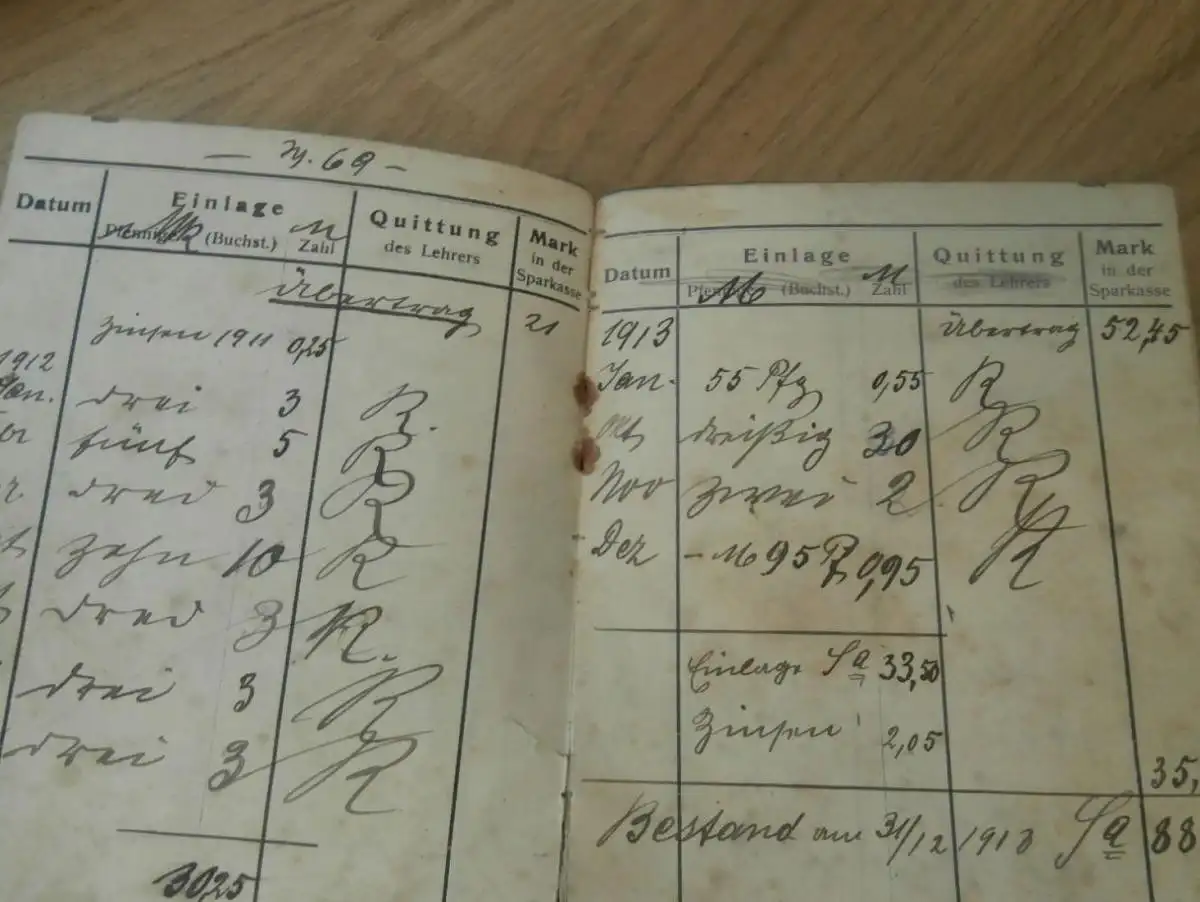 69
Datum Einlage Quittung Mark
Pfennige (Buchst.) M Zahl des Lehrers in der
Sparkasse
Übertrag 21
Zinsen 1911 0,25
1912
Jan. drei 3 R.
fünf 5 R
drei 3 R
zehn 10 R
drei 3 R.
drei 3 R
drei 3 R
30,25
Datum Einlage Quittung Mark
Pfennige M (Buchst.) M Zahl des Lehrers in der
Sparkasse
1913 Übertrag 52,45
Jan. 55 Pfg 0,55 R
Okt dreißig 30 R
Nov zwei 2 R
Dez – M 95 Pf 0,95 R
Einlage Sa 33,50
Zinsen 2,05
35,
Bestand am 31/12 1913 Sa 88